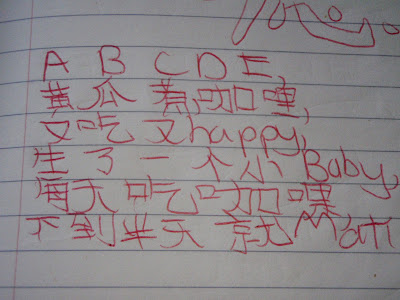 A B C D E,
黄瓜煮咖哩,
又吃又happy,
生了一个小Baby,
每天吃咖哩
不到半天就Mati